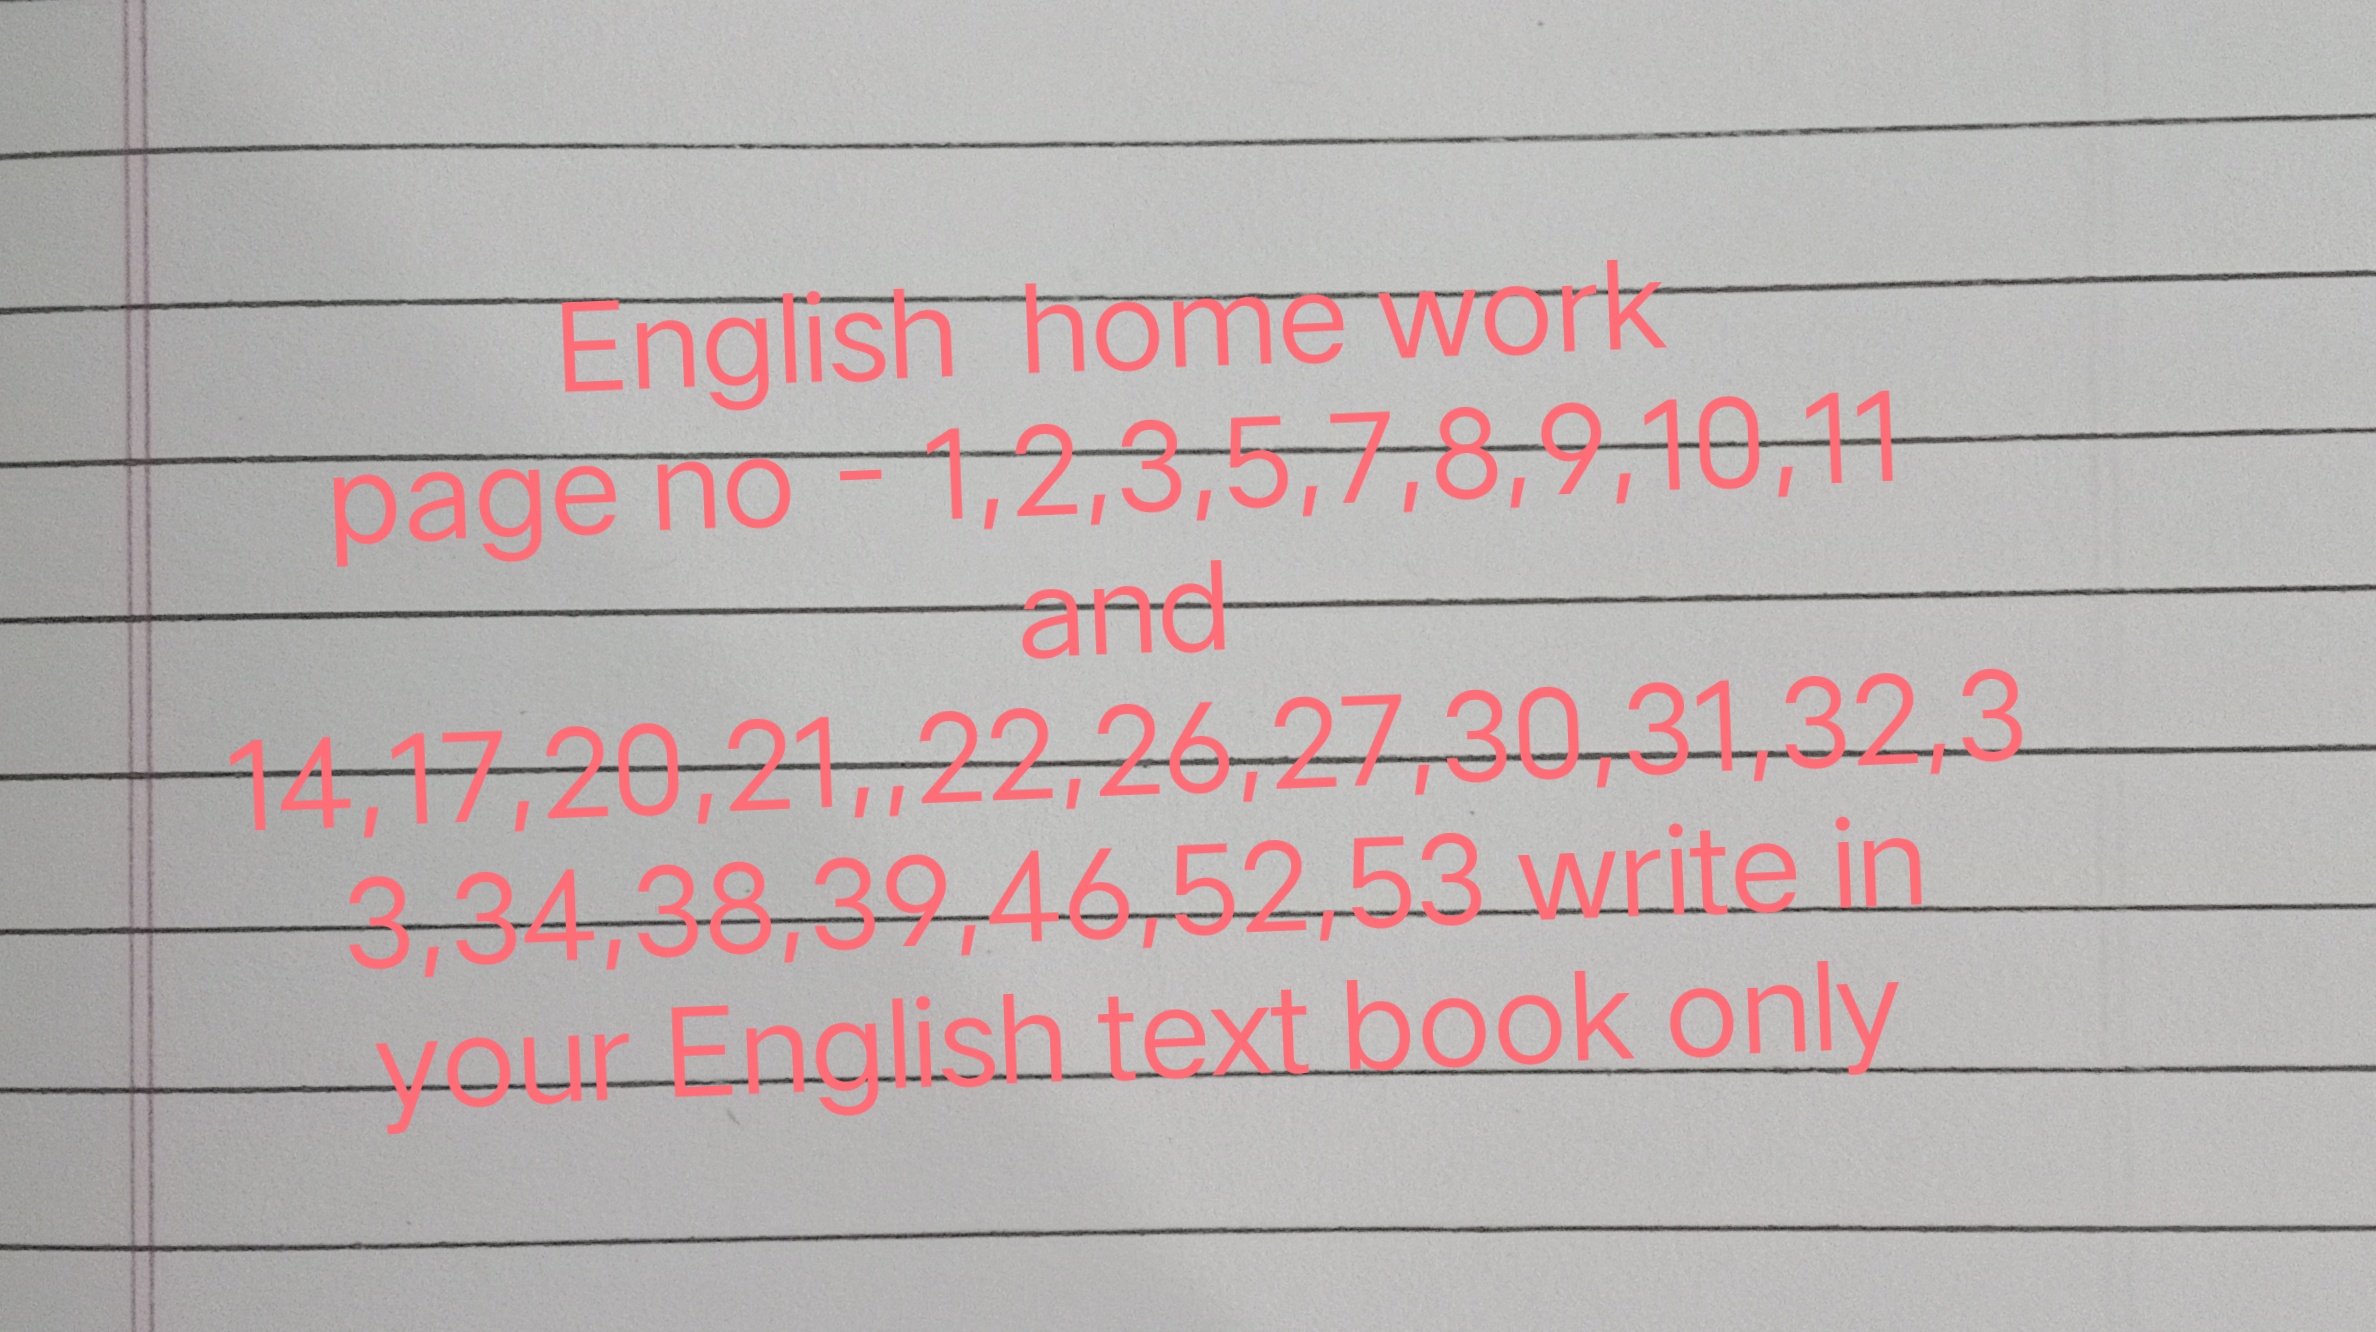 English  home work
page no - 1,2,3,5,7,8,9,10,11
and
14,17,20,21,,22,26,27,30,31,32,3
3,34,38,39,46,52,53 write in
your English text book only